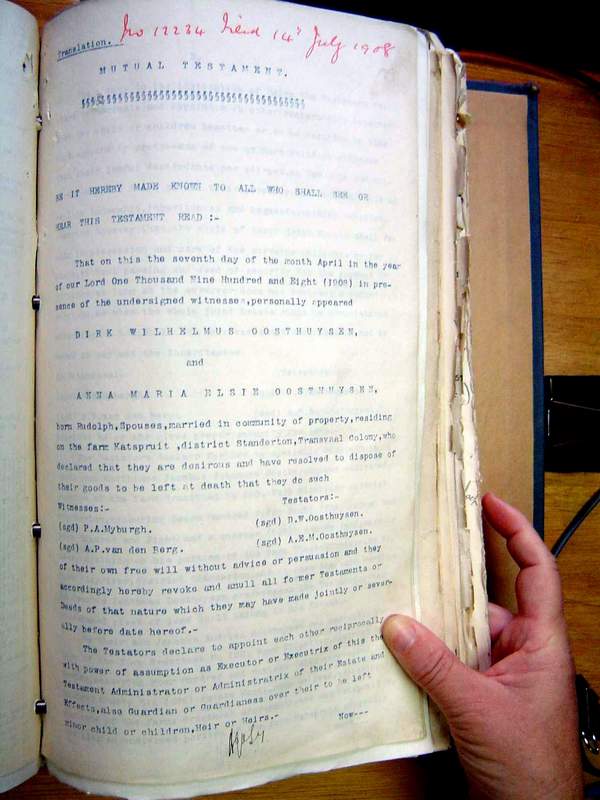 Translation. No 12234 Filed 14th July 1908
MUTUAL TESTAMENT.
§§§§§§§§§§§§§§§§§§§§§§§§§§§§§§§§§§§§§§§§
BE IT HEREBY MADE KNOWN TO ALL WHO SHALL SEE OR
HEAR THIS TESTAMENT READ :-
That on this the seventh day of the month April in the year
of our Lord One Thousand Nine Hundred and Eight (1908) in pre-
sence of the undersigned witnesses,personally appeared
DIRK WILHELMUS OOSTHUYSEN,
and
ANNA MARIA ELSIE OOSTHUYSEN,
born Rudolph,Spouses,married in community of property,residing
on the farm Katspruit ,district Standerton,Transvaal Colony,who
declared that they are desirous and have resolved to dispose of
their goods to be left at death that they do such
Witnesses:- Testators:-
(sgd) P.A.Myburgh. (sgd) D.W.Oosthuysen.
(sgd) A.P.van den Berg. (sgd) A.E.M.Oosthuysen.
of their own free will without advice or persuasion and they
accordingly hereby revoke and anull all fo mer Testaments or
Deeds of that nature which they may have made jointly or sever-
ally before date hereof.-
The Testators declare to appoint each other reciprocally
with power of assumption as Executor or Executrix of this the
Testament Administrator or Administratrix of their Estate and
Effects,also Guardian or Guardianess over their to be left
minor child or children,Heir or Heirs.-
Now---